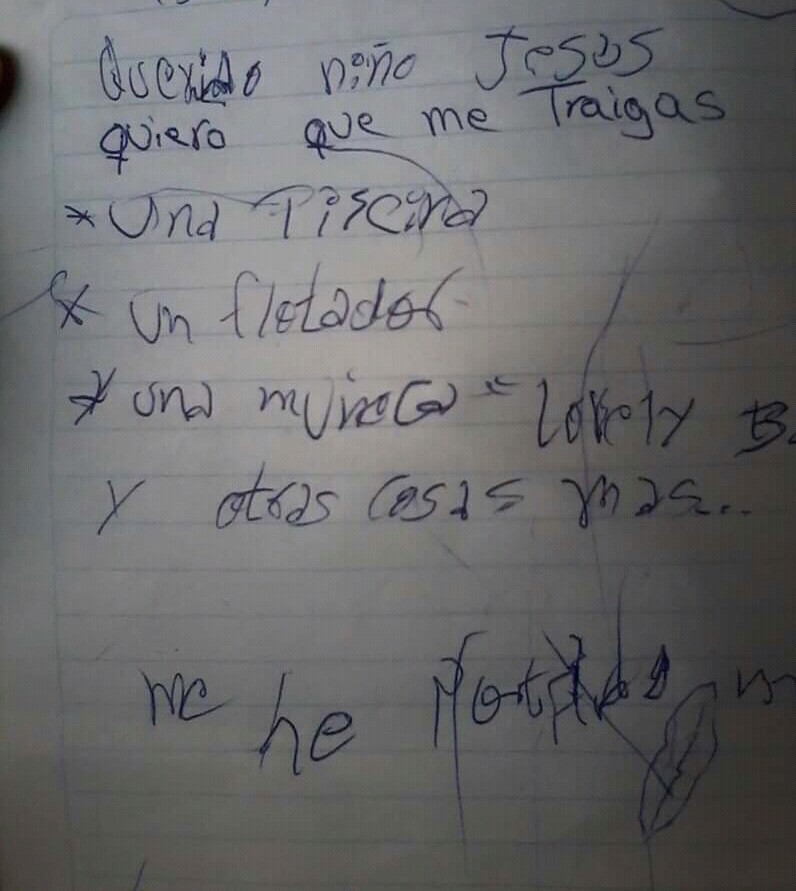 Querido niño Jesus
quiero que me Traigas
* Una Piscina
* Un flotador
* una muñeca = Lovely B.
Y otras cosas mas...
me he Portado